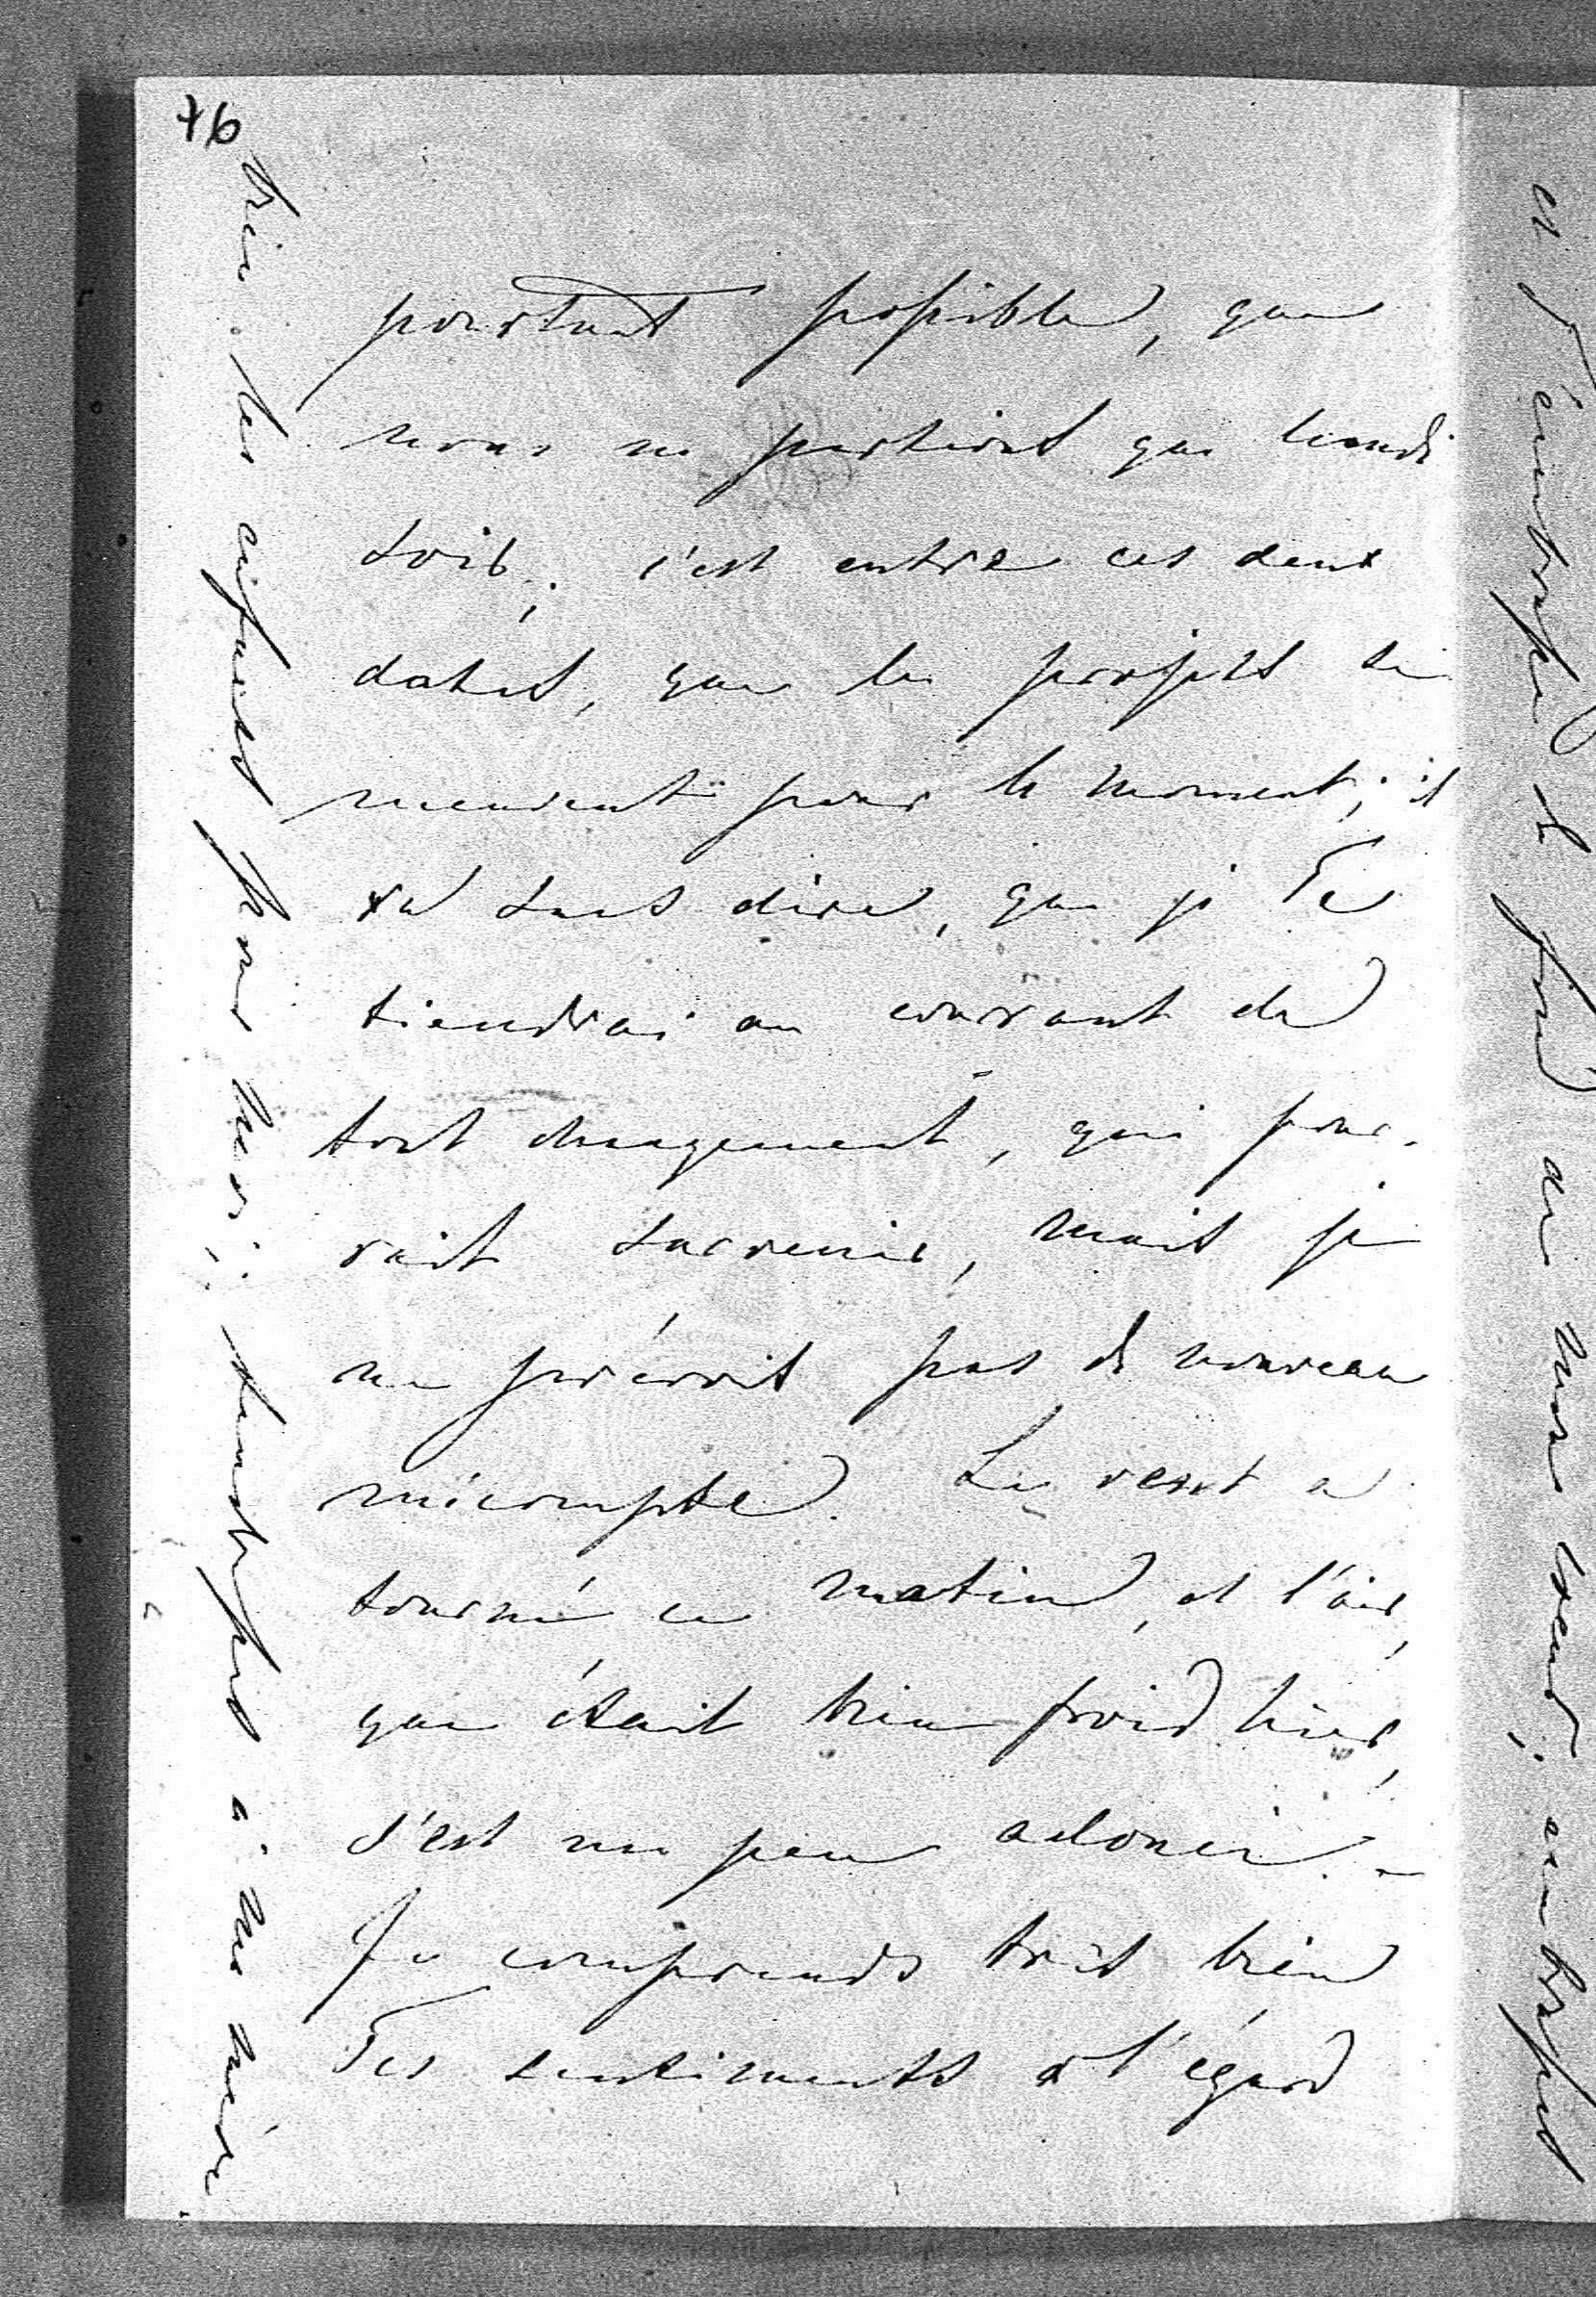 76
pourtant possible, que
nous ne partions que lundi
soir; c'est entre ces deux
dates, que les projets se
meuvent pour le moment; il
va sans dire, que je Te
tiendrai au courant de
tout changement, qui pour-
rait survenir, mais je
ne prévois pas de nouveau
mécompte. Le vent a
tourné ce matin, et l'air,
que était bien froid hier,
s'est un peu adouci. –
Je comprends très bien
Tes sentiments à l'égard
bien les enfants pour moi; dans à ma mère.
et T'embrasse de fond de mon cœur; embrasse